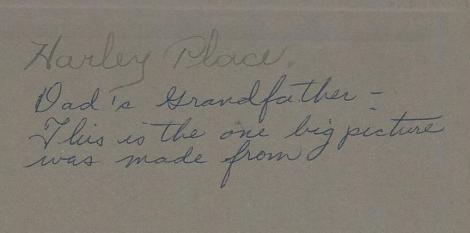 Harley Place.
Dad's Grandfather -
This is the one big picture
was made from